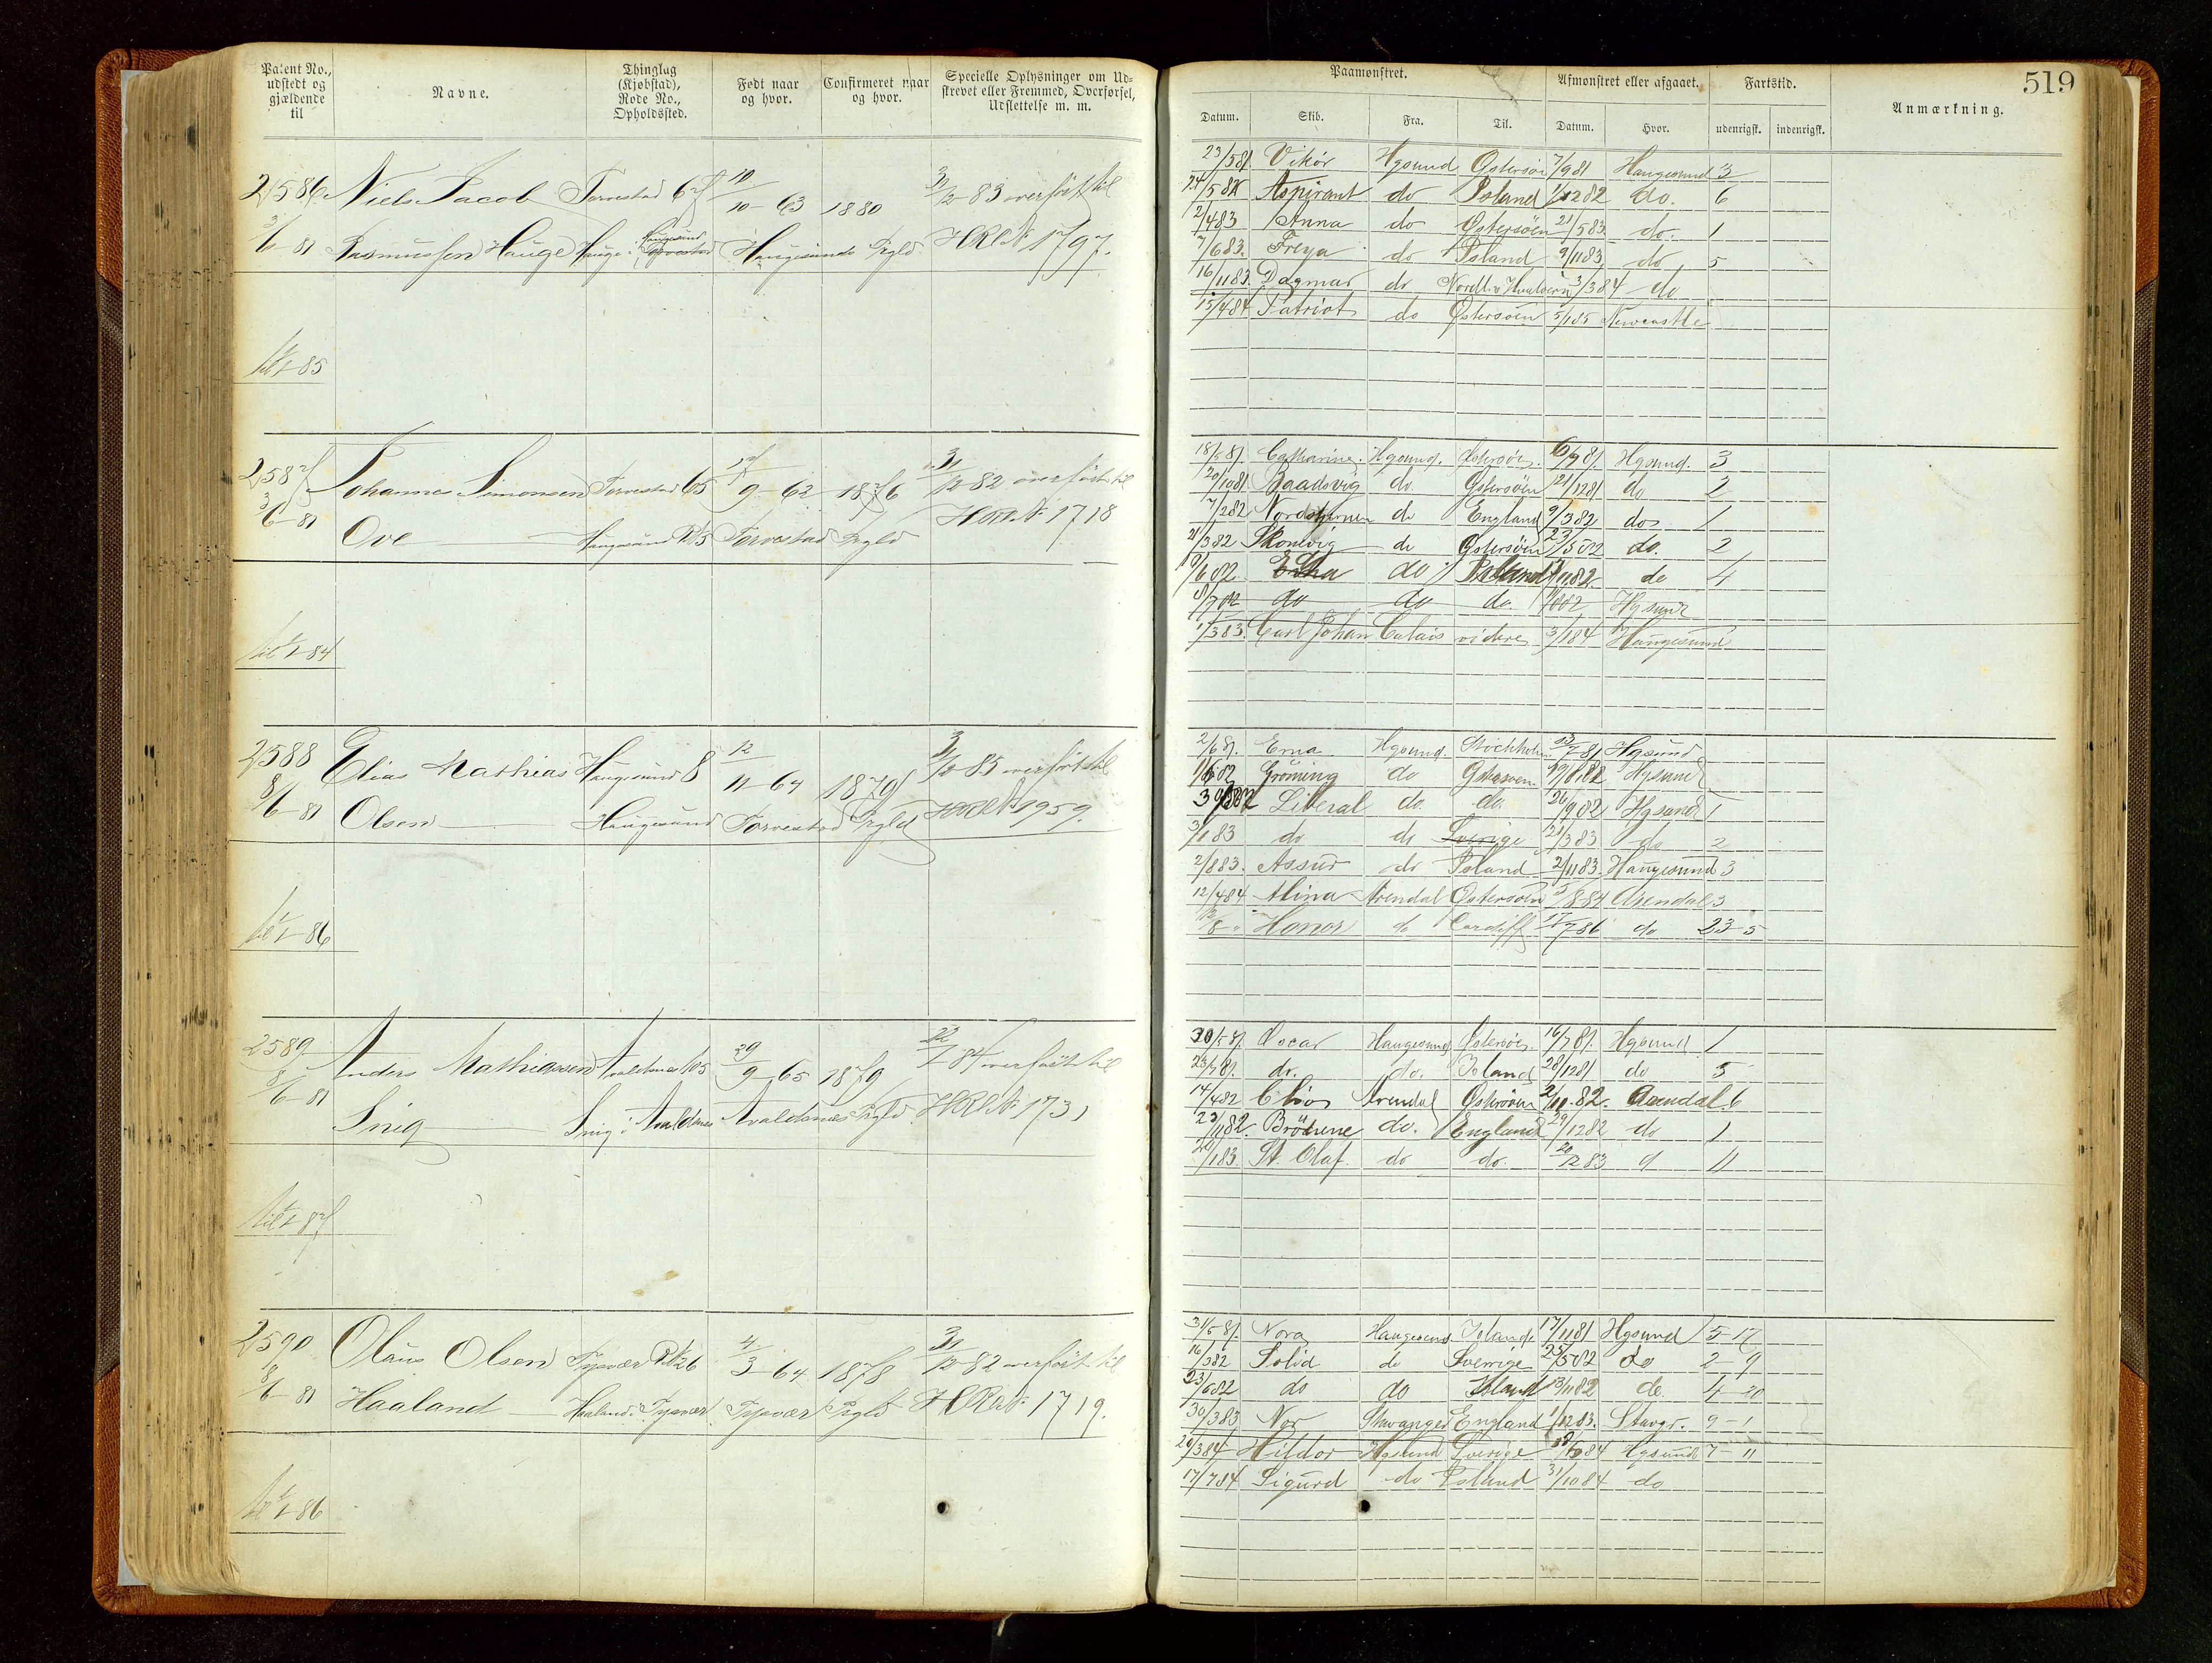 Patent No., udstedt og gjældende til
Navne.
Thinglag (Kjøbstad), Rode No., Opholdssted.
Født naar og hvor.
Confirmeret naar og hvor.
Specielle Oplysninger om Udskrevet eller Fremmed, Overførsel, Udslettelse m. m.
Paamønstret.
Afmønstret eller afgaaet.
Fartstid.
Anmærkning.
519
Datum. Skib. Fra. Til. Datum. Hvor. udenrigsk. indenrigsk.
2586 Niels Jacob Torvestad 67 10/10 - 63 1880 31/12 - 83 overført til
3/6 - 81 Rasmussen Hauge Hauge i Torvestad Haugesunds Prgld. HRl N. 1797.
til 1/1 - 85
23/5 81. Vikør Hgsund Østersøen 7/9 81 Haugesund 3
24/5 82 Aspirant do Island 1/12 82 do. 6
2/4 83 Anna do Østersøen 21/5 83 do. 1
7/6 83. Freya do Island 9/11 83 do 5
16/11 83. Dagmar do 3/3 84 do
15/4 84 Patriot do Østersøen 5/1 85 Newcastle
2587 Johannes Simonsen Torvestad 65 17/9 - 62 1876 31/12 - 82 overført til
3/6 - 81 Ove Haugesund R 5 Torvestad Prgld HRl N. 1718
til 1/1 - 84
18/5 81. Catharine. Hgsund. Østersøen. 6/9 81. Hgsund. 3
20/10 81 Baadsvig do. Østersøen 21/12 81 do 2
7/2 82 Nordstjernen do England 9/3 82 do 1
21/3 82 Skonevig do Østersøen 23/5 82 do. 2
do Island 11 82. do 4
do do do. 82 Hgsund
1/3 83. Carl Johan Calais videre 3/1 84 Haugesund
2588 Elias Mathias Haugesund 8 12/11 - 64 1879 31/12 - 85 overført til
8/6 - 81 Olsen Haugesund Torvestad Prgld HRl N. 1959.
til 1/1 - 86
2/6 81. Erna Hgsund. Stockholm 81 Hgsund
Grøning do Østersøen Hgsund
Liberal do. do. 26/9 82 Hgsund 1
3/1 83 do do Sverige 21/3 83 do 2
2/8 83. Assur do Island 2/11 83. Haugesund 3
12/4 84 Alina Arendal Østersøen 5/8 84 Arendal 3
Honor do Cardiff 17/7 86 do 23 - 5
2589 Anders Mathiassen Avaldsnes 105 29/9 - 65 1879 22/1 84 overført til
8/6 - 81 Snig Snig i Avaldsnes Avaldsnes Prgld. HRl N. 1731
til 1/1 - 87
30/5 81. Oscar Haugesund Østersøen. 16/7 81. Hgsund. 1
23/7 81. do. do. Island 28/12 81 do 5
14/4 82 Clio Arendal Østersøen 2/11 82. Arendal 6
23/11 82. Brødrene do. England 29/12 82 do 1
20/1 83. St. Olaf. do do. 20/12 83 11
2590 Olaus Olsen Tysvær R 26 4/3 64. 1878 31/12 - 82 overført til
8/6 - 81 Haaland Haaland i Tysvær Tysvær Prgld HRl N. 1719.
til 1/1 - 86
31/5 81. Nora Haugesund Island 17/11 81 Hgsund 5 - 17
16/3 82 Solid do Sverrige 25/5 82 do 2 - 9
23/6 82 do do Island 13/11 82 do 4 - 20
30/3 83 Nor Stavanger England 1/12 83. Stavgr. 9 - 1
29/3 84 Hildor Hgsund Sverige 84 Hgsund 7 - 11
17/7 84 Sigurd do Island 31/10 84 do